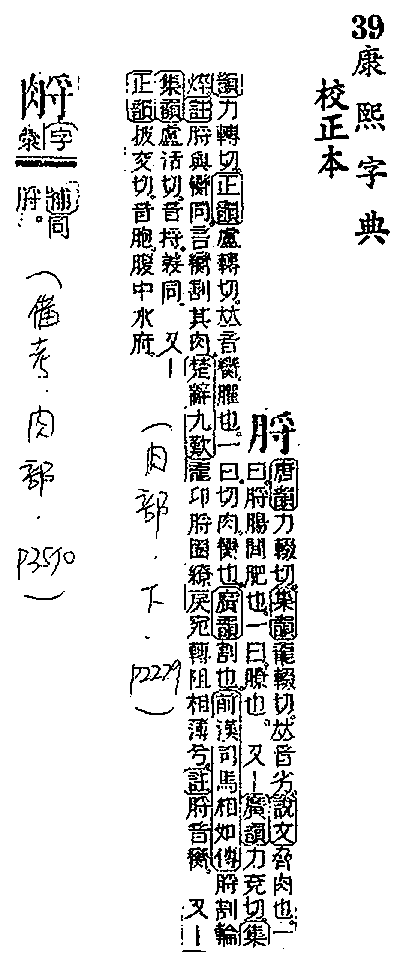 39
康熙字典
校正本
脟
唐韻力輟切集韻龍輟切𠀤音劣說文脅肉也一
曰脟腸閒肥也一曰膫也 又一廣韻力兗切集
韻力轉切正韻盧轉切𠀤音臠臞也一曰切肉臠也廣韻割也前漢司馬相如傳脟割輪
焠註脟與臠同言臠割其肉楚辭九歎龍卬脟圈繚戾宛轉阻相薄兮註脟音臠 又一
集韻盧活切音捋義同 又一
正韻披交切音胞腹中水府
(肉部.下.P2229)
字彙補同脟
(備考.肉部.P3510)